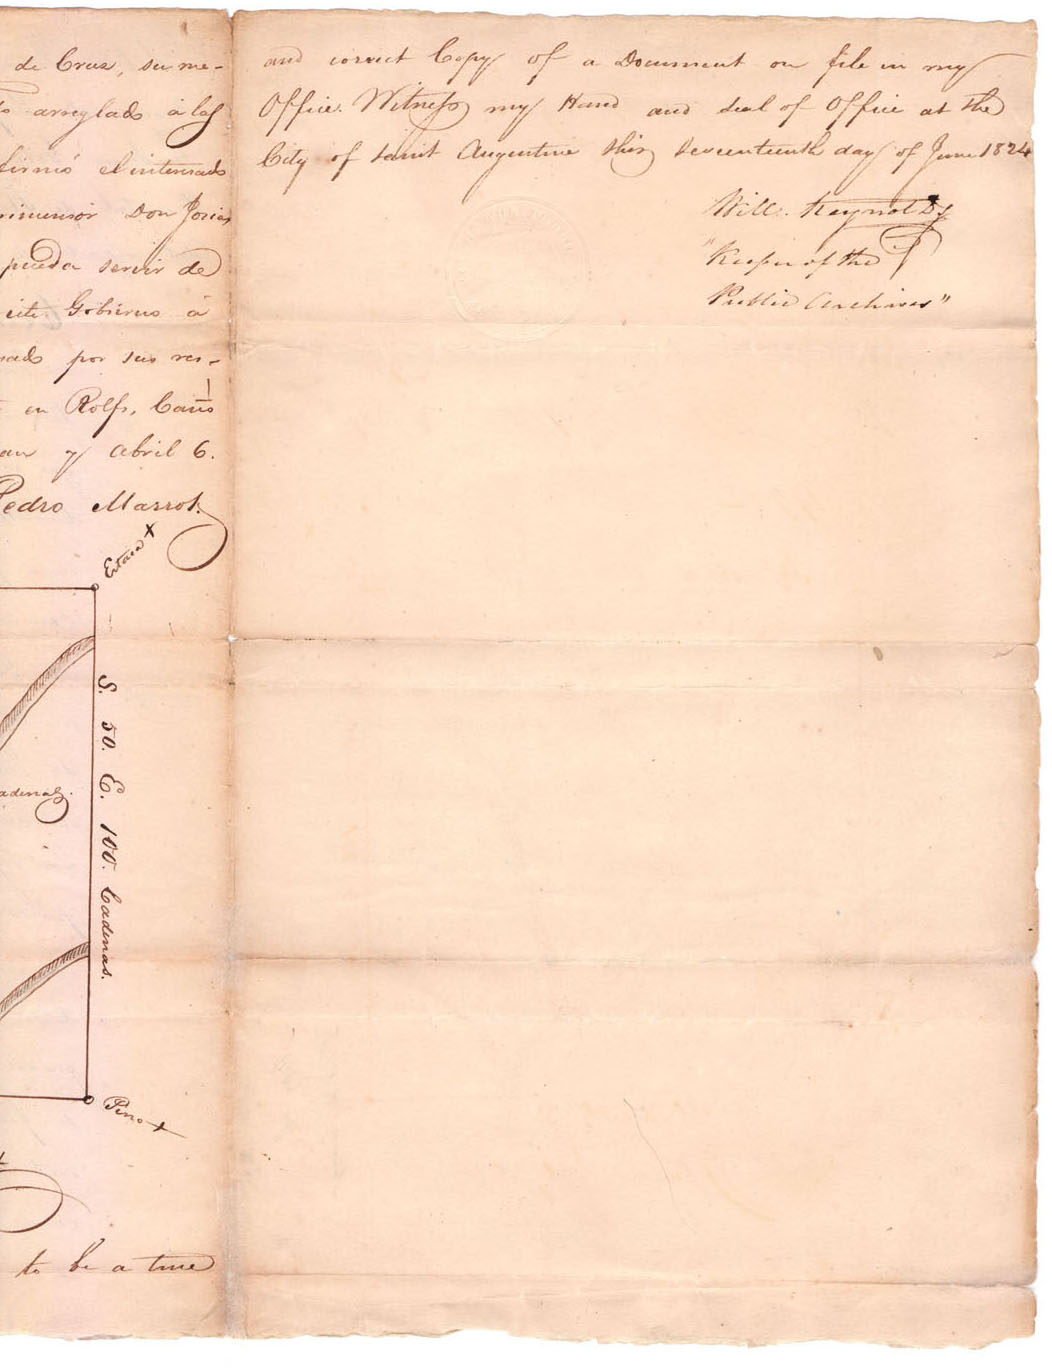 de Cruz, su me-
arreglado á las
firmó el interesado
Don Josias
pueda servir de
este Gobierno á
por sus res-
en Rolfs, Caño
y Abril 6.
Pedro Marrot.
Estaca X
S. 50. E. 100. Cadenas.
Pino +
to be a true
and correct Copy of a Document on file in my
Office. Witness my Hand and Seal of Office at the
City of Saint Augustine this Seventeenth day of June 1824
Will. Reynolds
"Keeper of the
Public Archives"